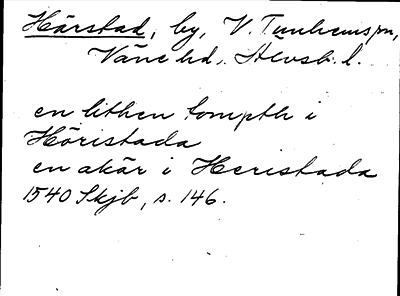 Härstad, by, V. Tunhems sn,
Väne hd, Älvsb. l.
en lithen tompth i
Höristada
en akär i Heristada
1540 Skjb, s. 146.